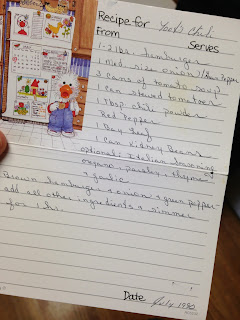 Recipe for Chili
From
Serves
1-2 lbs. hamburger
1 med. size onion / Green Pepper
cans of tomato soup
1 can stewed tomatoes
1 Tbsp. chili powder
Red Pepper
1 Bay leaf
1 can Kidney Beans
optional: Italian Seasoning
oregano, parsley, thyme
& garlic
Brown hamburger & onion & green pepper-
add all other ingredients & simmer
for 1 hr.
Date July 1990